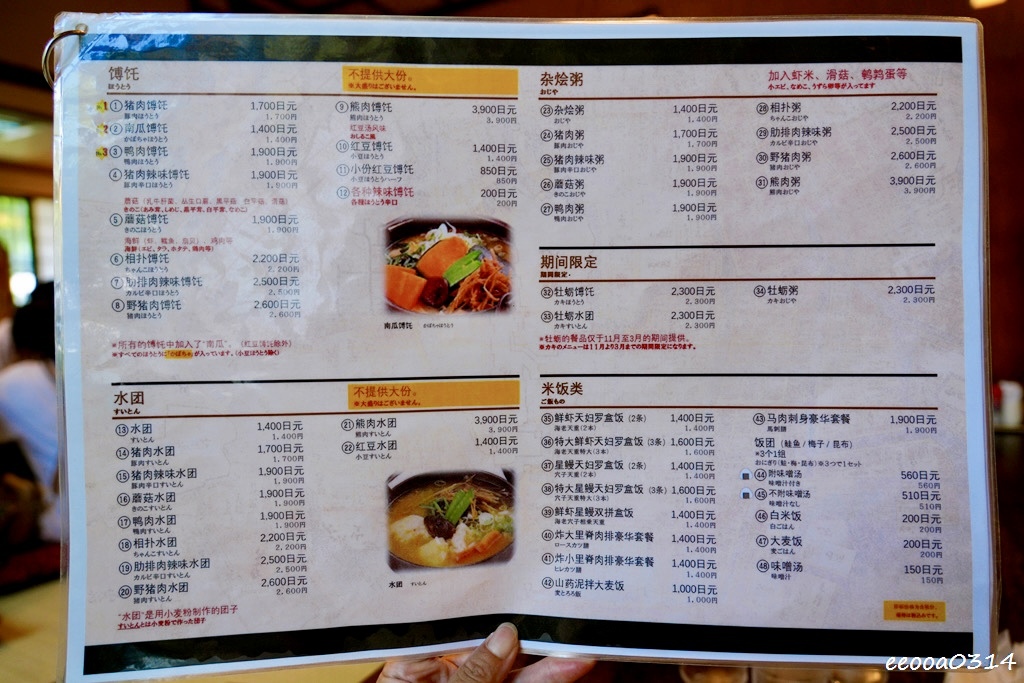 馎饦
ほうとう
不提供大份。
※大盛りはございません。
① 猪肉馎饦 1,700日元
豚肉ほうとう 1.700円
② 南瓜馎饦 1,400日元
かぼちゃほうとう 1.400円
3 ③ 鸭肉馎饦 1,900日元
鴨肉ほうとう 1.900円
④ 猪肉辣味馎饦 1,900日元
豚肉辛口ほうとう 1.900円
⑤ 蘑菇馎饦 1,900日元
きのこほうとう 1.900円
海鮮(エビ、タラ、ホタテ、鶏肉等)
⑥ 相扑馎饦 2,200日元
ちゃんこほうとう 2.200円
⑦ 肋排肉辣味馎饦 2,500日元
カルビ辛口ほうとう 2.500円
⑧ 野猪肉馎饦 2,600日元
猪肉ほうとう 2.600円
※所有的馎饦中加入了“南瓜”。（红豆馎饦除外）
※すべてのほうとうに「かぼちゃ」が入っています。(小豆ほうとう除く)
⑨ 熊肉馎饦 3,900日元
熊肉ほうとう 3.900円
红豆汤风味
おしるこ風
⑩ 红豆馎饦 1,400日元
小豆ほうとう 1.400円
⑪ 小份红豆馎饦 850日元
小豆ほうとうハーフ 850円
⑫ 各种辣味馎饦 200日元
各種ほうとう辛口 200円
南瓜馎饦 かぼちゃほうとう
水团
すいとん
不提供大份。
※大盛りはございません。
⑬ 水团 1,400日元
すいとん 1.400円
⑭ 猪肉水团 1,700日元
豚肉すいとん 1.700円
⑮ 猪肉辣味水团 1,900日元
豚肉辛口すいとん 1.900円
⑯ 蘑菇水团 1,900日元
きのこすいとん 1.900円
⑰ 鸭肉水团 1,900日元
鴨肉すいとん 1.900円
⑱ 相扑水团 2,200日元
ちゃんこすいとん 2.200円
⑲ 肋排肉辣味水团 2,500日元
カルビ辛口すいとん 2.500円
⑳ 野猪肉水团 2,600日元
猪肉すいとん 2.600円
“水团”是用小麦粉制作的团子
すいとんとは小麦粉で作った団子
㉑ 熊肉水团 3,900日元
熊肉すいとん 3.900円
㉒ 红豆水团 1,400日元
小豆すいとん 1.400円
水团 すいとん
杂烩粥
おじや
加入虾米、滑菇、鹌鹑蛋等
小エビ、なめこ、うずら卵等が入ってます
㉓ 杂烩粥 1,400日元
おじや 1.400円
㉔ 猪肉粥 1,700日元
豚肉おじや 1.700円
㉕ 猪肉辣味粥 1,900日元
豚肉辛口おじや 1.900円
㉖ 蘑菇粥 1,900日元
きのこおじや 1.900円
㉗ 鸭肉粥 1,900日元
鴨肉おじや 1.900円
㉘ 相扑粥 2,200日元
ちゃんこおじや 2.200円
㉙ 肋排肉辣味粥 2,500日元
カルビ辛口おじや 2.500円
㉚ 野猪肉粥 2,600日元
猪肉おじや 2.600円
㉛ 熊肉粥 3,900日元
熊肉おじや 3.900円
期间限定
期間限定・
㉜ 牡蛎馎饦 2,300日元
カキほうとう 2.300円
㉝ 牡蛎水团 2,300日元
カキすいとん 2.300円
㉞ 牡蛎粥 2,300日元
カキおじや 2.300円
※牡蛎的餐品仅于11月至3月的期间提供。
※カキのメニューは11月より3月までの期間限定になります。
米饭类
ご飯もの
㉟ 鲜虾天妇罗盒饭（2条） 1,400日元
海老天重(2本) 1.400円
㊱ 特大鲜虾天妇罗盒饭（3条） 1,600日元
海老天重特大(3本) 1.600円
㊲ 星鳗天妇罗盒饭（2条） 1,400日元
穴子天重(2本) 1.400円
㊳ 特大星鳗天妇罗盒饭（3条） 1,600日元
穴子天重特大(3本) 1.600円
㊴ 鲜虾星鳗双拼盒饭 1,400日元
海老穴子相乗天重 1.400円
㊵ 炸大里脊肉排豪华套餐 1,400日元
ロースカツ膳 1.400円
㊶ 炸小里脊肉排豪华套餐 1,400日元
ヒレカツ膳 1.400円
㊷ 山药泥拌大麦饭 1,000日元
麦とろろ飯 1.000円
㊸ 马肉刺身豪华套餐 1,900日元
馬刺膳 1.900円
饭团（鲑鱼 / 梅子 / 昆布）
※3个1组
おにぎり(鮭・梅・昆布)※3つで1セット
㊹ 附味噌汤 560日元
味噌汁付き 560円
㊺ 不附味噌汤 510日元
味噌汁なし 510円
㊻ 白米饭 200日元
白ごはん 200円
㊼ 大麦饭 200日元
麦ごはん 200円
㊽ 味噌汤 150日元
味噌汁 150円
eeooa0314